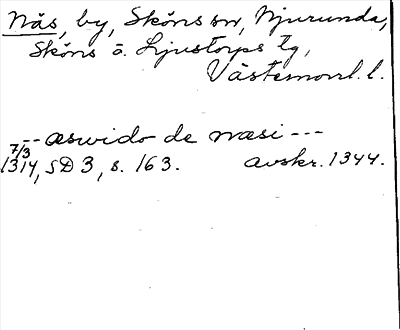 Näs, by, Sköns sn, Njurunda,
Sköns o. Ljustorps tg,
Västernorrl. l.
-- æswido de næsi ---
7/3
1314, SD 3, s. 163. avskr. 1344.